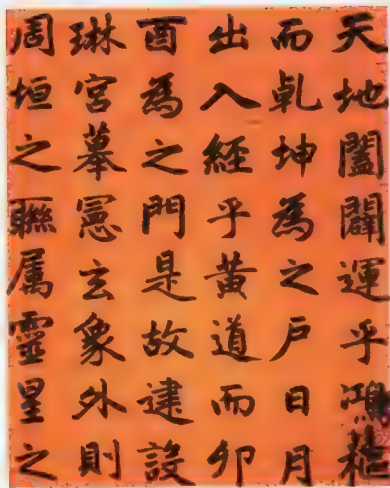 天地闔闢運乎鴻樞
而乹坤為之戶日月
出入經乎黃道而卯
酉為之門是故建設
琳宮摹憲玄象外則
周垣之聮属靈星之